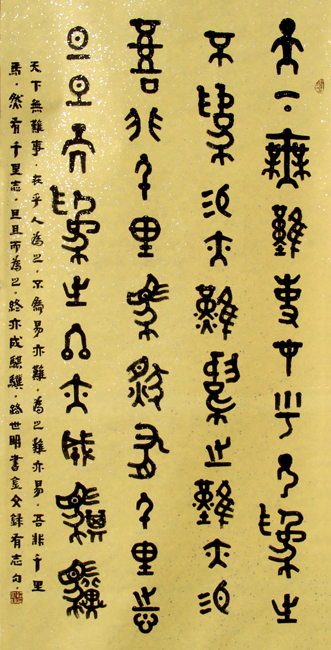 天下無難事在乎人為之
不為易亦難為之難亦易
吾非千里馬然有千里志
旦旦而為之終亦成騏驥
天下無難事.在乎人為之.不為易亦難.為之難亦易.吾非千里
馬.然有千里志.旦旦而為之.終亦成騏驥.路世明書金文錄有志句.